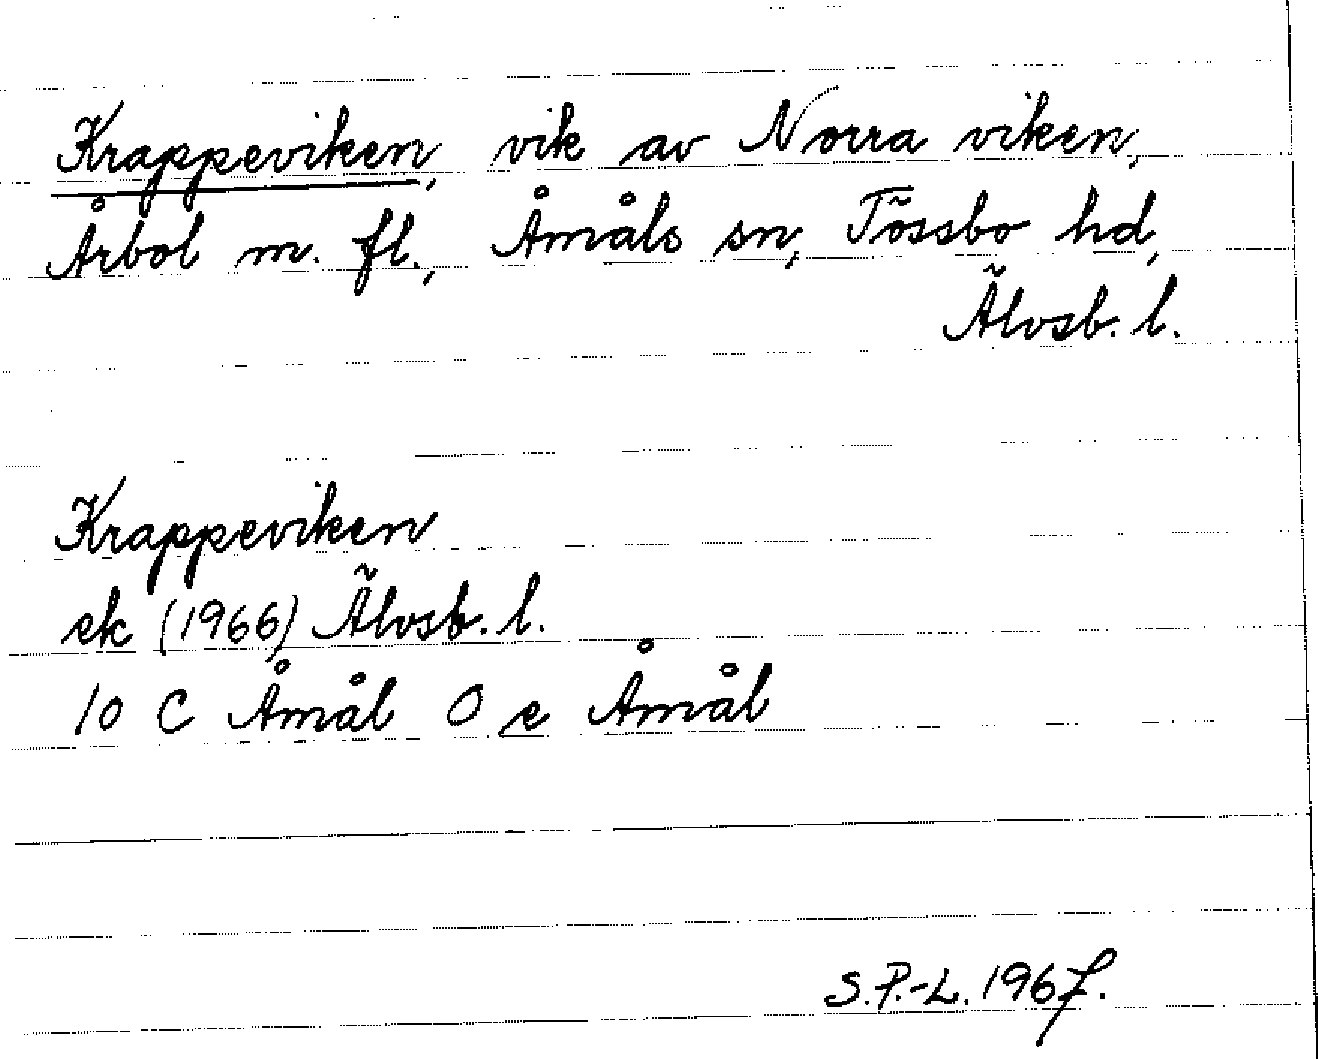 Krappeviken, vik av Norra viken,
Årbol m. fl., Åmåls sn, Tössbo hd,
Älvsb. l.
Krappeviken
ek (1966) Älvsb. l.
10 C Åmål O e Åmål
S.P.-L. 1967.